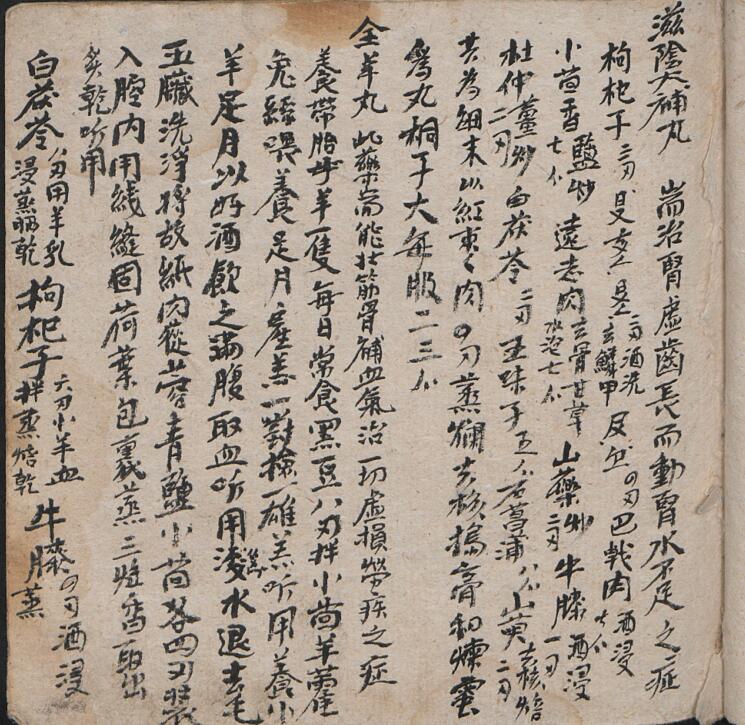 滋陰大補丸 耑治腎虛齒長而動腎水不足之症
枸杞子 去鱗甲 二刃酒洗 四刃巴戟肉 酒浸
小茴香 七个 鹽炒 遠志肉 去骨甘草水泡七个 山藥炒 二刃 牛膝 酒浸一刃
杜仲 二刃 薑炒 白茯苓 二刃 五味子 五个 石菖蒲 八个 山萸 去核焙二刃
共為細末以紅棗肉四刃蒸爛去核搗膏和煉蜜
為丸桐子大每服二三个
全羊丸 此藥耑能壯筋骨補血氣治一切虛損勞疾之症
養帶胎母羊一隻每日常食黑豆八刃拌小茴羊
兔絲喂養足月產羔一對檢一雄羔听用養小
羊足月以好酒飲之滿腹取血听用滾水退去毛
五臟洗淨將故紙肉蓯蓉青鹽小茴各四刃裝
入腔內用綫縫固荷葉包裹蒸三炷香取出
炙乾听用
白茯苓 八刃用羊乳浸蒸晒乾 枸杞子 六刃小羊血拌蒸焙乾 牛膝 四刃酒浸蒸